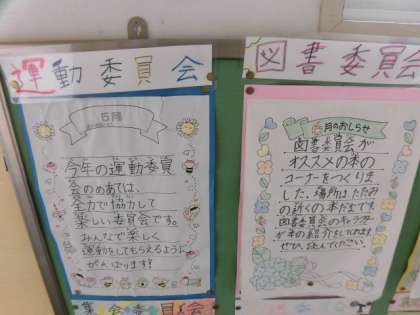 運動委員会
5月
今年の運動委員
会のめあては、
全力で協力して
楽しい委員会です。
みんなで楽しく
運動をしてもらえるように
がんばります!
集会委員会
図書委員会
6月のおしらせ
図書委員会が
オススメの本の
コーナーをつくりま
した。場所はたたみ
の近くの本だなです。
図書委員会のキャラクターが
本の紹介をしてくれます。
ぜひ、読んでください。